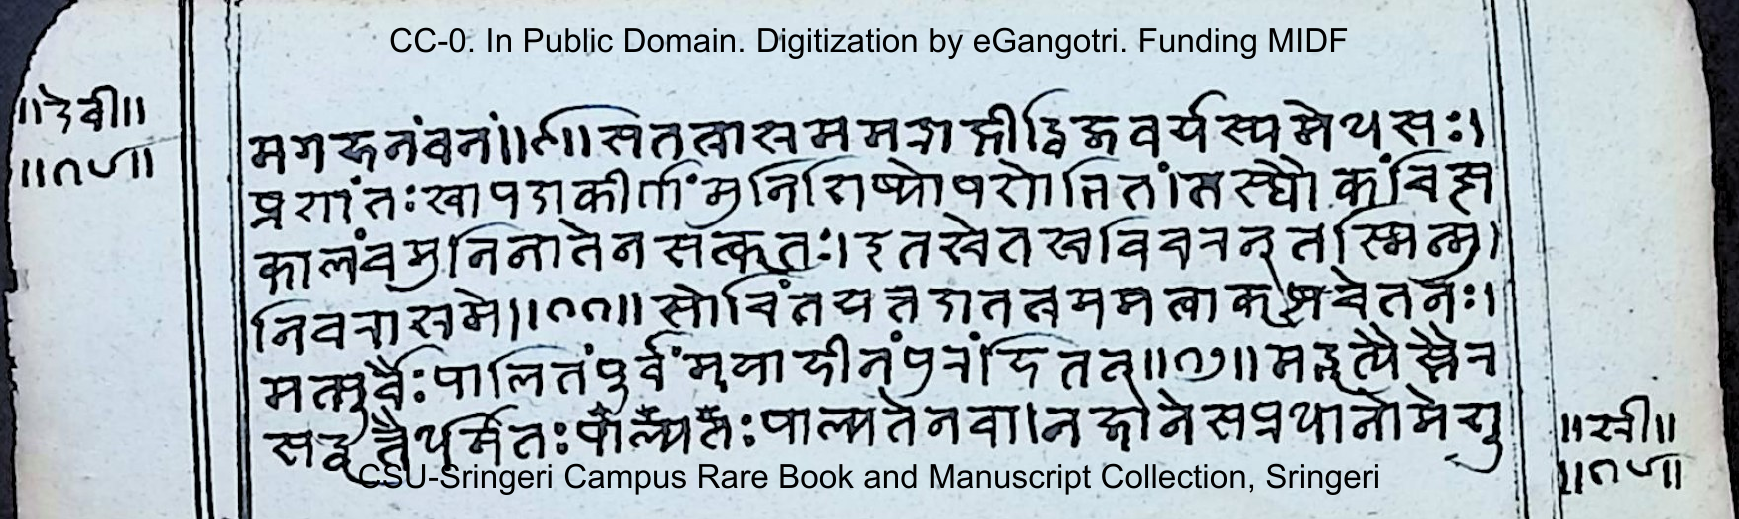 CC-0. In Public Domain. Digitization by eGangotri. Funding MIDF
॥देवी॥
॥१५॥
मगहनंवनं॥९॥सतत्राश्रममद्राक्षीद्विजवर्यस्यमेधसः।
प्रशांतःश्वापदाकीर्णंमुनिशिष्योपशोभितं।तस्थौकंचित्स
कालंचमुनिनातेनसत्कृतः।इतश्चेतश्चविचरन् तस्मिन्मु
निवराश्रमे॥११॥सोचिंतयत्तदातत्रममत्वाकृष्टचेतनः।
मत्पूर्वैःपालितंपूर्वंमयाहीनंपुरंहितत्॥१२॥मद्भृत्यैस्तैर
सद्वृत्तैर्धर्मतःपाल्यतेनवा।नजानेसप्रधानोमेशू
॥श्री॥
॥१५॥
CSU-Sringeri Campus Rare Book and Manuscript Collection, Sringeri